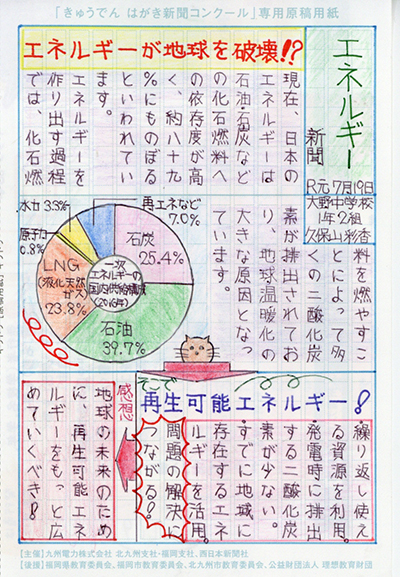 「きゅうでん はがき新聞コンクール」専用原稿用紙
エネルギー
新聞
R元 7月19日
大野中学校
1年2組
久保山彩香
エネルギーが地球を破壊!?
現在、日本の
エネルギーは
石油・石炭など
の化石燃料へ
の依存度が高
く、約八十九
%にものぼる
といわれてい
ます。
エネルギーを
作り出す過程
では、化石燃
料を燃やすこ
とによって多
くの二酸化炭
素が排出されてお
り、地球温暖化の
大きな原因となっ
ています。
一次
エネルギーの
国内供給構成
(2016年)
石炭
25.4%
石油
39.7%
LNG
(液化天然
ガス)
23.8%
原子力
0.8%
水力 3.3%
再エネなど
7.0%
そこで
再生可能エネルギー!
繰り返し使え
る資源を利用。
発電時に排出
する二酸化炭
素が少ない。
すでに地域に
存在するエネ
ルギーを活用。
問題の解決に
つながる!
感想
地球の未来のため
に、再生可能エネ
ルギーをもっと広
めていくべき!
【主催】九州電力株式会社 北九州支社・福岡支社、西日本新聞社
【後援】福岡県教育委員会、福岡市教育委員会、北九州市教育委員会、公益財団法人 理想教育財団